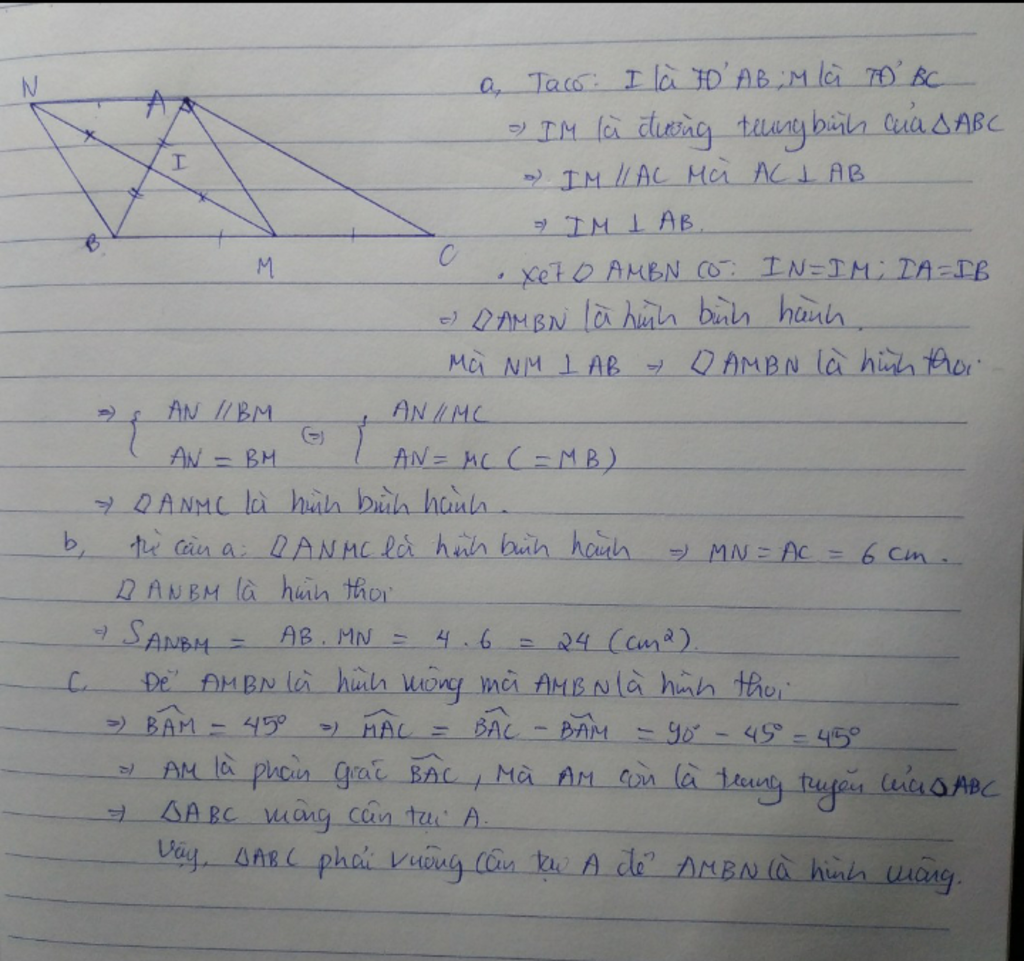 N
A
I
B
M
C
a, Ta có: I là TĐ' AB; M là TĐ' BC
⇒ IM là đường trung bình của △ABC
⇒ IM // AC Mà AC ⊥ AB
⇒ IM ⊥ AB.
. Xét ◊ AMBN có: IN=IM; IA=IB
⇒ ◊AMBN là hình bình hành.
Mà NM ⊥ AB ⇒ ◊AMBN là hình thoi.
⇒ { AN // BM (=) { AN // MC
AN = BM AN = MC (=MB)
⇒ ◊ANMC là hình bình hành.
b, từ câu a: ◊ANMC là hình bình hành ⇒ MN = AC = 6 cm.
◊ANBM là hình thoi
⇒ SANBM = AB. MN = 4 . 6 = 24 (cm²).
C. Để AMBN là hình vuông mà AMBN là hình thoi
⇒ BAM̂ = 45° ⇒ MAĈ = BAĈ - BAM̂ = 90° - 45° = 45°
⇒ AM là phân giác BAĈ, Mà AM còn là trung tuyến của △ABC
⇒ △ABC vuông cân tại A.
Vậy, △ABC phải vuông cân tại A để AMBN là hình vuông.